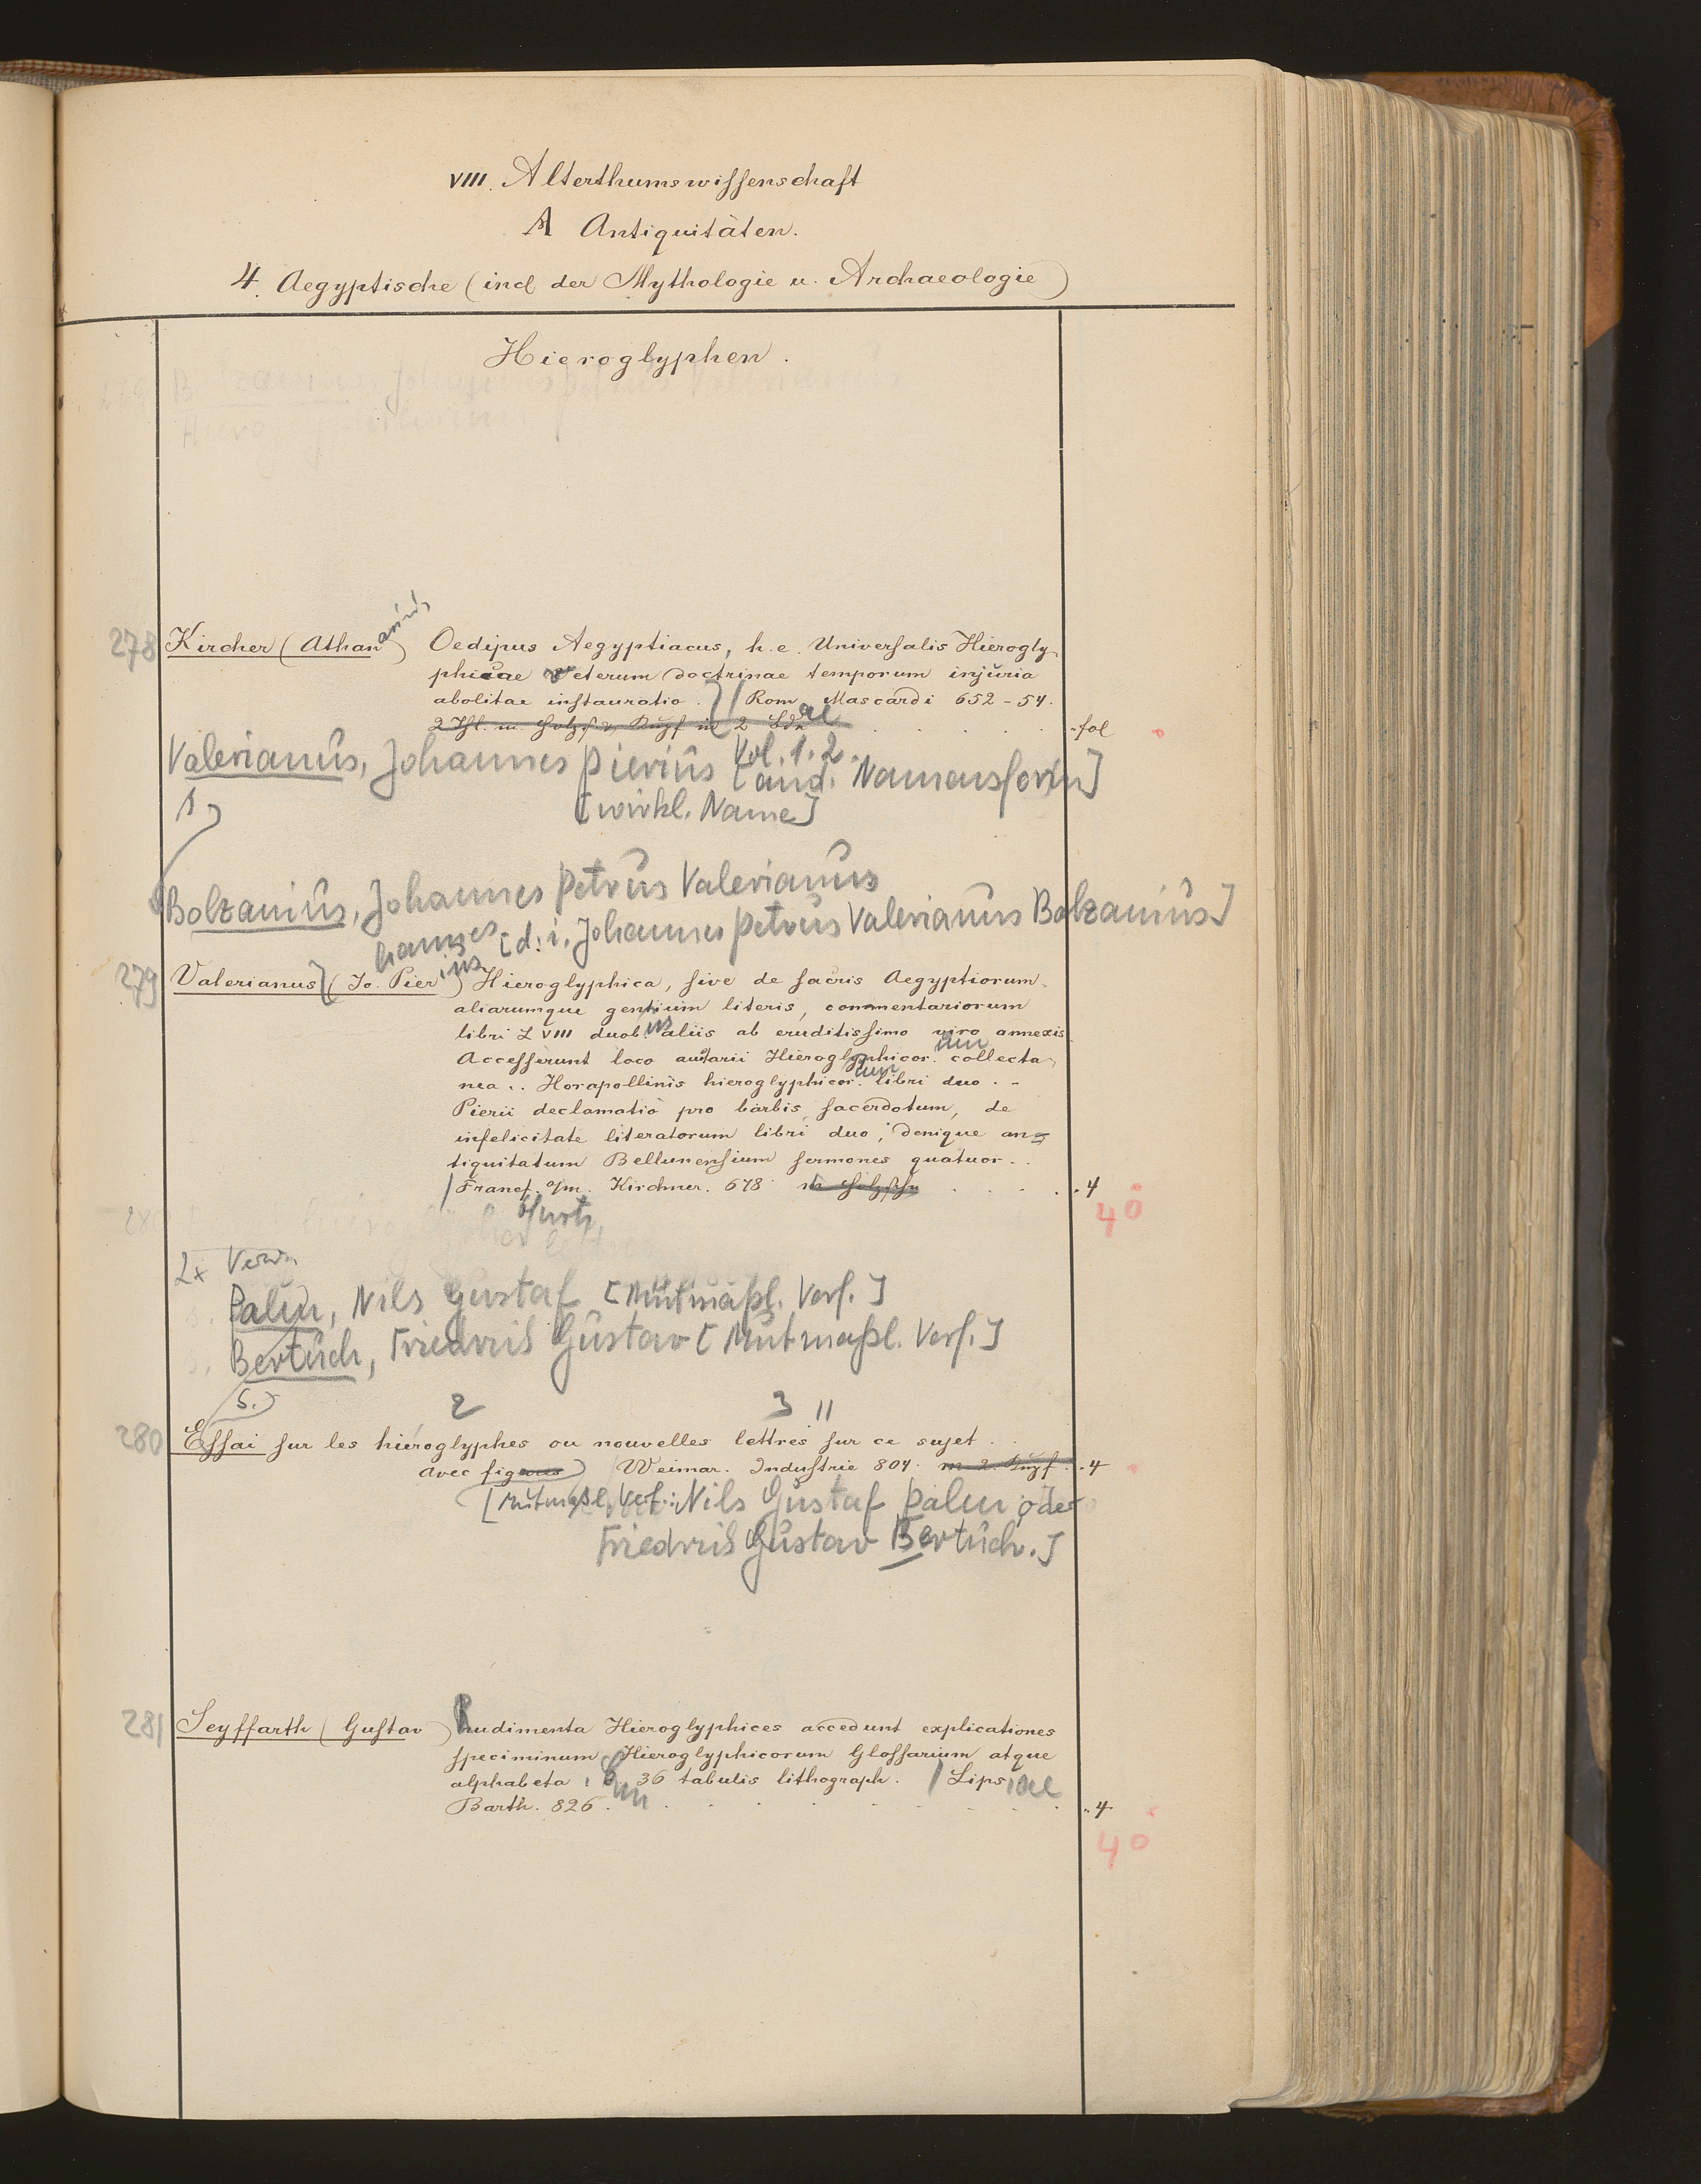 VIII. Alterthumswissenschaft
A Antiquitäten.
4. Aegyptische (incl der Mythologie u. Archaeologie)
Hieroglyphen.
278 Kircher (Athanasius) Oedipus Aegyptiacus, h. e. Universalis Hierogly-
phicae veterum doctrinae temporum injuria
abolitae instauratio. Romae Mascardi 652-54.
2 Thl. m. Holzs. u. Kupf in 2 Bdn fol
Vol. 1. 2.
Valerianus, Johannes Pierius [and. Namensform]
s. [wirkl. Name]
Bolzanius, Johannes Petrus Valerianus
[d. i. Johannes Petrus Valerianus Bolzanius]
279 Valerianus] (Johannes Pierius) Hieroglyphica, sive de sacris Aegyptiorum
aliarumque gentium literis, commentariorum
libri LVIII duobus aliis ab eruditissimo viro annexis
Accesserunt loco auctarii Hieroglyphicorum collecta-
nea .. Horapollinis hieroglyphicorum libri duo. -
Pierii declamatio pro barbis sacerdotum, de
infelicitate literatorum libri duo, denique an-
tiquitatum Bellunensium sermones quatuor..
Francf. a/m. Kirchner. 678 m Holzschn 4
furti 4°
2x Verw.
s. Palin, Nils Gustaf [Mutmaßl. Verf.]
s. Bertuch, Friedrich Gustav [Mutmaßl. Verf.]
s.
2 3 11
280 Essai sur les hiéroglyphes ou nouvelles lettres sur ce sujet.
avec figures Weimar. Industrie 804. m. 2. Kupf. 4
[Mutmaßl. Verf.: Nils Gustaf Palin oder
Friedrich Gustav Bertuch.]
281 Seyffarth (Gustav) Rudimenta Hieroglyphices accedunt explicationes
speciminum Hieroglyphicorum Glossarium atque
alphabeta, cum 36 tabulis lithograph. Lipsiae
Barth. 826. 4
4°